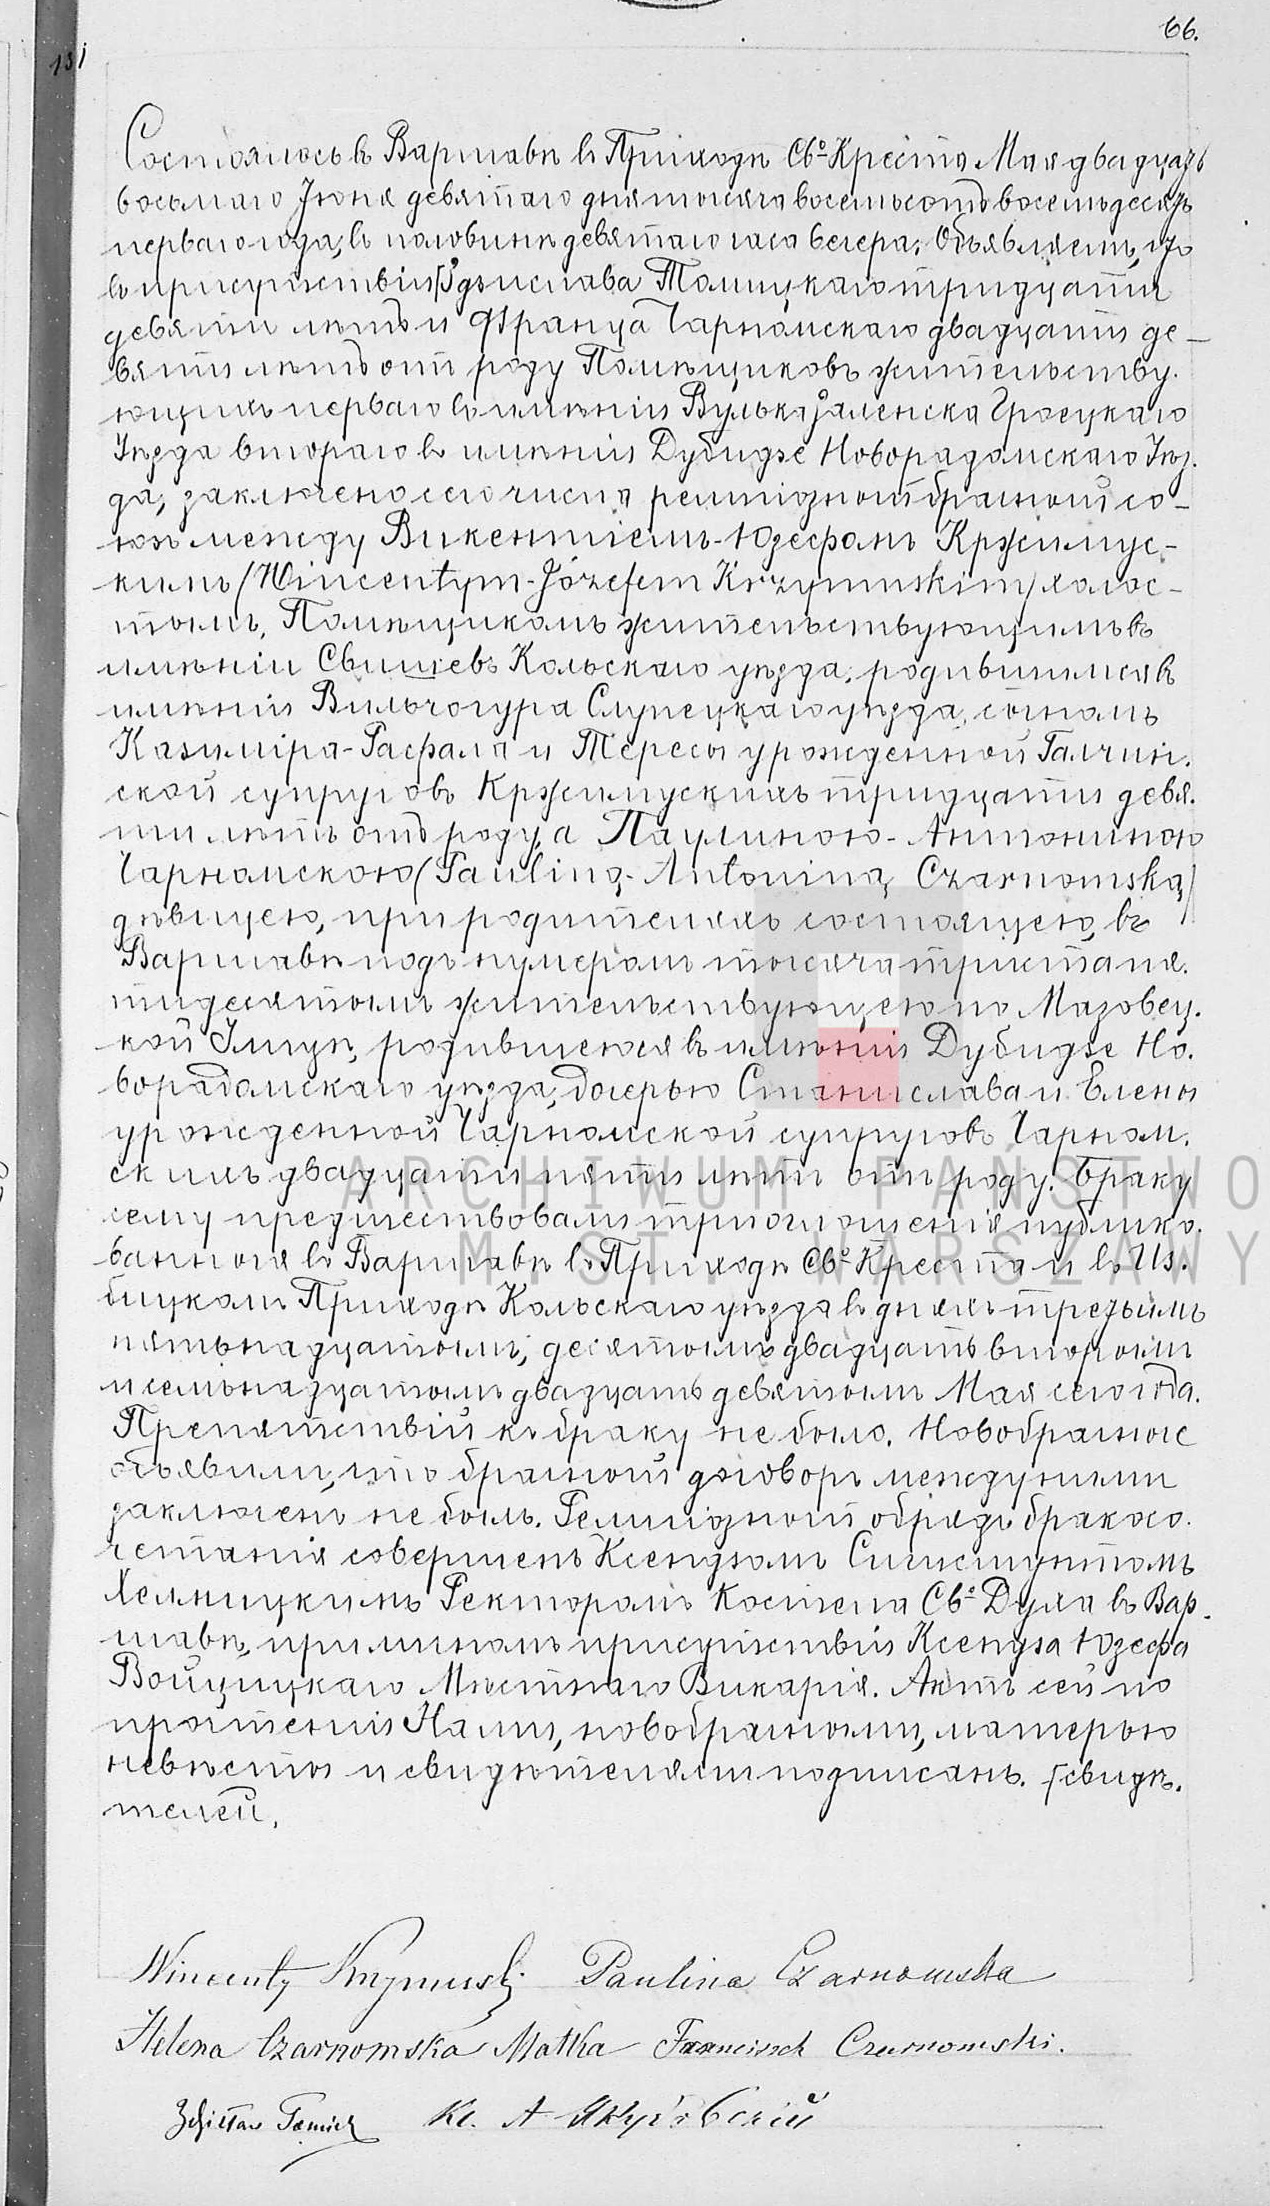 66.
131
Состоялось въ Варшавѣ въ Приходѣ Свº Креста Мая двадцать
восьмаго Іюня девятаго дня тысяча восемьсотъ восемьдесятъ
перваго года, въ половинѣ девятаго часа вечера. Объявляемъ, что
въ присутствіи [Здзислава Томицкаго тридцати
девяти лѣтъ и Франца Чарномскаго двадцати де-
вяти лѣтъ отъ роду Помѣщиковъ жительству.
ющихъ перваго въ имѣніи Вулька Заленска Гроецкаго
Уѣзда втораго въ имѣніи Дубидзе Новорадомскаго Уѣз.
да, заключено сего числа религіозный брачный со-
юзъ между Викентіемъ-Юзефомъ Кржимус-
кимъ (Wincentym-Józefem Krzymuskim) холос-
тымъ, Помѣщикомъ жительствующимъ въ
имѣніи Свишевъ Кольскаго уѣзда, родившимся въ
имѣніи Вильчогура Слупецкаго уѣзда, сыномъ
Казиміра-Рафала и Тересы урожденной Галчин.
ской супруговъ Кржимускихъ тридцати девя.
ти лѣтъ отъ роду, а Паулиною-Антониною
Чарномскою (Pauliną-Antoniną Czarnomską)
дѣвицею, при родителяхъ состоящею, въ
Варшавѣ подъ нумеромъ тысяча триста пя.
тидесятымъ жительствующею по Мазовец.
кой Улицѣ, родившеюся въ имѣніи Дубидзе Но.
ворадомскаго уѣзда, дочерью Станислава и Елены
урожденной Чарномской супруговъ Чарном.
скихъ двадцати пяти лѣтъ отъ роду. Браку
сему предшествовали три оглошенія публико.
ванныя въ Варшавѣ въ Приходѣ Свº Креста и въ Из.
бицкомъ Приходѣ Кольскаго уѣзда въ дняхъ третьимъ
пятьнадцатымъ, десятымъ двадцать вторымъ
и семьнадцатымъ двадцать девятымъ Мая сего года.
Препятствій къ браку не было. Новобрачные
объявили, что брачный договоръ между ними
заключенъ не былъ. Религіозный обрядъ бракосо.
четанія совершенъ Ксендзомъ Сигисмунтомъ
Хелмицкимъ Ректоромъ Костела Свº Духа въ Вар.
шавѣ, при личномъ присутствіи Ксендза Юзефа
Войцицкаго Мѣстнаго Викарія. Актъ сей по
прочтеніи Нами, новобрачными, матерью
невѣсты и свидѣтелями подписанъ. [свидѣ.
телей.
Wincenty Krzymuski Paulina Czarnomska
Helena Czarnomska Matka Franciszek Czarnomski.
Zdzisław Tomicki Кс. А Якубовскій
ARCHIWUM PAŃSTWO
M. ST. WARSZAWY